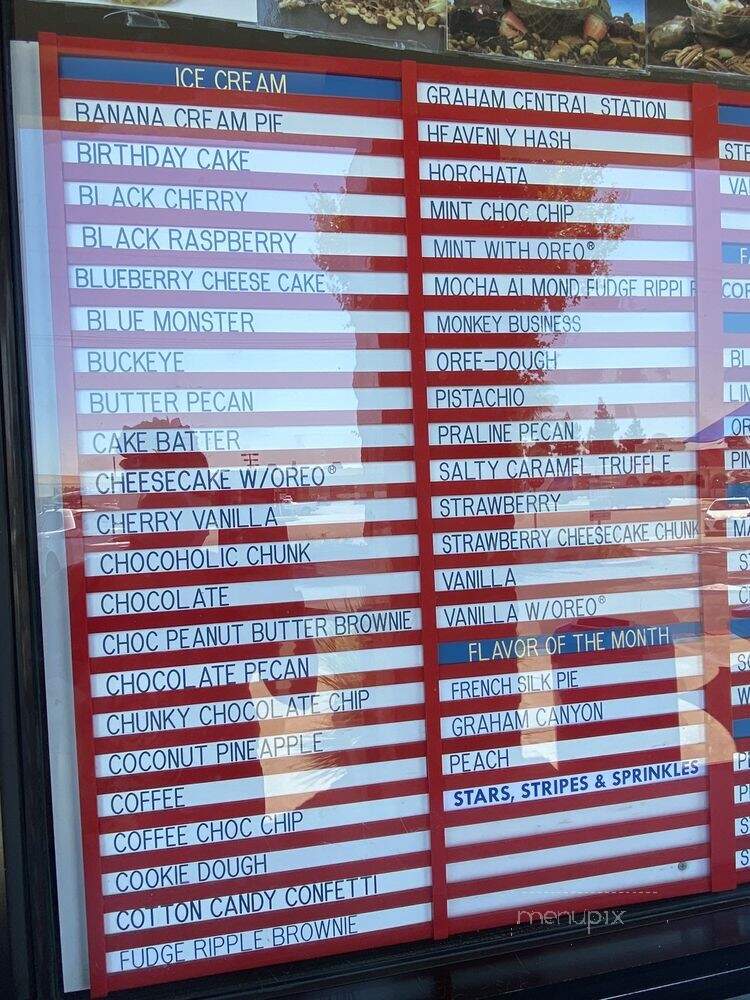 ICE CREAM
BANANA CREAM PIE
BIRTHDAY CAKE
BLACK CHERRY
BLACK RASPBERRY
BLUEBERRY CHEESE CAKE
BLUE MONSTER
BUCKEYE
BUTTER PECAN
CAKE BATTER
CHEESECAKE W/OREO®
CHERRY VANILLA
CHOCOHOLIC CHUNK
CHOCOLATE
CHOC PEANUT BUTTER BROWNIE
CHOCOLATE PECAN
CHUNKY CHOCOLATE CHIP
COCONUT PINEAPPLE
COFFEE
COFFEE CHOC CHIP
COOKIE DOUGH
COTTON CANDY CONFETTI
FUDGE RIPPLE BROWNIE
GRAHAM CENTRAL STATION
HEAVENLY HASH
HORCHATA
MINT CHOC CHIP
MINT WITH OREO®
MOCHA ALMOND FUDGE RIPPLE
MONKEY BUSINESS
OREE-DOUGH
PISTACHIO
PRALINE PECAN
SALTY CARAMEL TRUFFLE
STRAWBERRY
STRAWBERRY CHEESECAKE CHUNK
VANILLA
VANILLA W/OREO®
FLAVOR OF THE MONTH
FRENCH SILK PIE
GRAHAM CANYON
PEACH
STARS, STRIPES & SPRINKLES
menupix